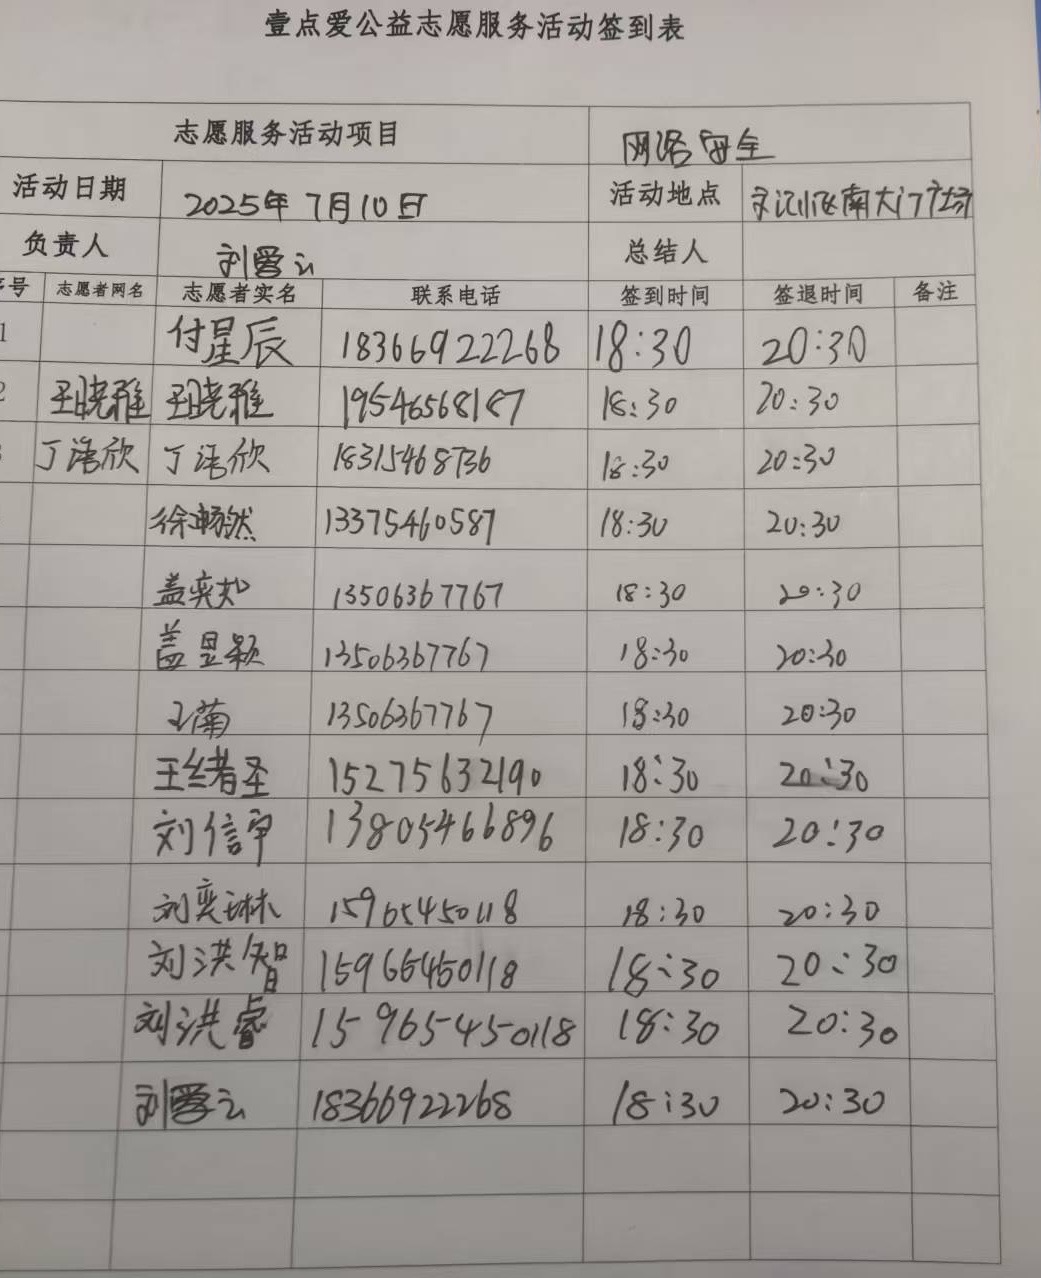 壹点爱公益志愿服务活动签到表
志愿服务活动项目 网络安全
活动日期 2025年7月10日 活动地点 南大门广场
负责人 刘爱云 总结人
序号 志愿者网名 志愿者实名 联系电话 签到时间 签退时间 备注
1 付星辰 18366922268 18:30 20:30
2 王晓雅 王晓雅 19546568187 18:30 20:30
丁浩欣 丁浩欣 18315468736 18:30 20:30
徐畅然 13375460587 18:30 20:30
盖奕 13506367767 18:30 20:30
盖昱颖 13506367767 18:30 20:30
王菊 13506367767 18:30 20:30
王绪圣 15275632190 18:30 20:30
刘信宇 13805466896 18:30 20:30
刘奕琳 15965450118 18:30 20:30
刘洪智 15965450118 18:30 20:30
刘洪睿 15965450118 18:30 20:30
刘爱云 18366922268 18:30 20:30